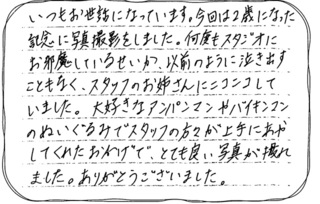 いつもお世話になっています。今回は2歳になった
記念に写真撮影をしました。何度もスタジオに
お邪魔しているせいか、以前のように泣き出す
こともなく、スタッフのお姉さんにニコニコして
いました。大好きなアンパンマンやバイキンマン
のぬいぐるみでスタッフの方々が上手にあや
してくれたおかげで、とても良い写真が撮れ
ました。ありがとうございました。